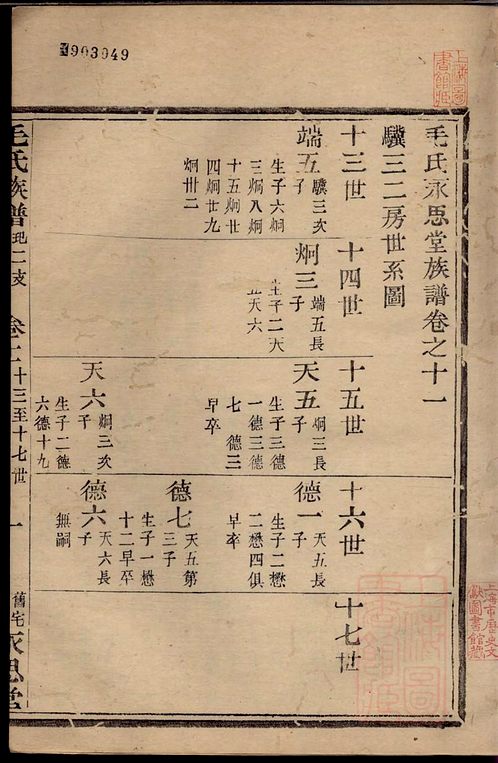 903949
毛氏永思堂族譜卷之十一
驥三二房世系圖
十三世
端五
驥三次
子
生子六烱
三烱八烱
十五烱廿
四烱廿九
烱卅二
十四世
烱三
端五長
子
生子二天
五天六
十五世
天五
烱三長
子
生子三德
一德三德
七 德三
早卒
天六
烱三次
子
生子二德
六德十九
十六世
德一
天五長
子
生子二懋
二懋四俱
早卒
德七
天五第
三子
生子一懋
十二早卒
德六
天六長
子
無嗣
十七世
毛氏族譜
二支
十三至十七世
一
舊宅
永思堂
上海圖
書館藏
上海市歷史文
獻圖書館藏
上海圖
書館藏